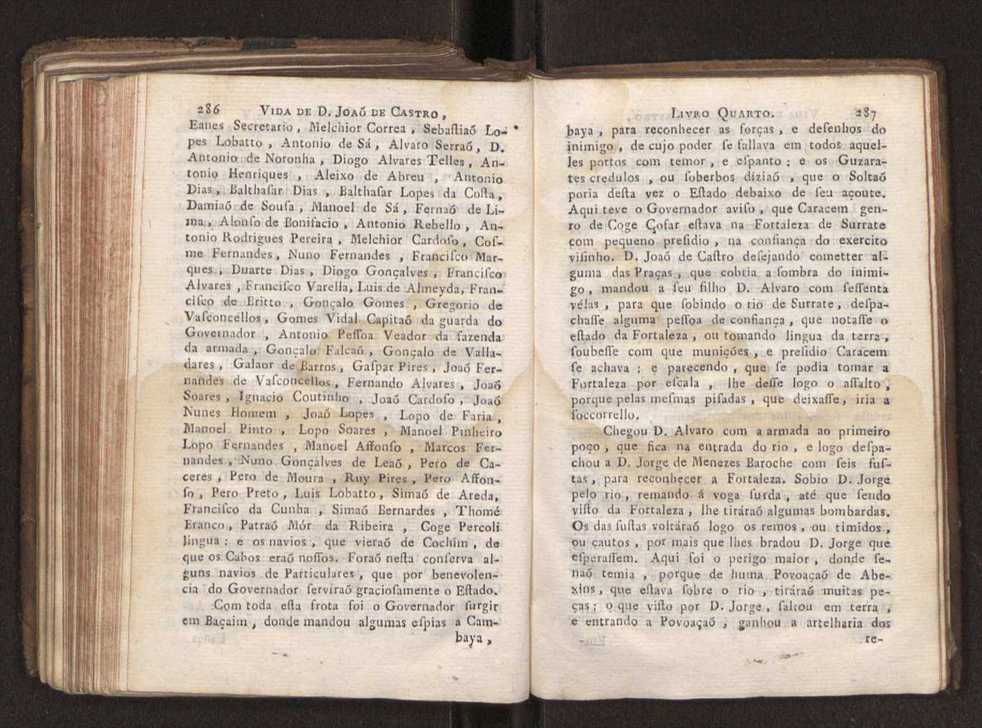 286 VIDA DE D. JOAÓ DE CASTRO,
Eanes Secretario, Melchior Correa, Sebaſtiaõ Lo-
pes Lobatto, Antonio de Sá, Alvaro Serraó, D.
Antonio de Noronha, Diogo Alvares Telles, An-
tonio Henriques, Aleixo de Abreu, Antonio
Dias, Balthaſar Dias, Balthaſar Lopes da Coſta,
Damiaõ de Souſa, Manoel de Sá, Fernaõ de Li-
ma, Alonſo de Bonifacio, Antonio Rebello, An-
tonio Rodrigues Pereira, Melchior Cardoſo, Coſ-
me Fernandes, Nuno Fernandes, Franciſco Mar-
ques, Duarte Dias, Diogo Gonçalves, Franciſco
Alvares, Franciſco Varella, Luis de Almeyda, Fran-
ciſco de Britto, Gonçalo Gomes, Gregorio de
Vaſconcellos, Gomes Vidal Capitaõ da guarda do
Governador, Antonio Peſſoa Veador da fazenda
da armada, Gonçalo Falcaõ, Gonçalo de Valla-
dares, Galaor de Barros, Gaſpar Pires, Joaõ Fer-
nandes de Vaſconcellos, Fernando Alvares, Joaõ
Soares, Ignacio Coutinho, Joaõ Cardoſo, Joaõ
Nunes Homem, Joaõ Lopes, Lopo de Faria,
Manoel Pinto, Lopo Soares, Manoel Pinheiro
Lopo Fernandes, Manoel Affonſo, Marcos Fer-
nandes, Nuno Gonçalves de Leaõ, Pero de Ca-
ceres, Pero de Moura, Ruy Pires, Pero Affon-
ſo, Pero Preto, Luis Lobatto, Simaõ de Areda,
Franciſco da Cunha, Simaõ Bernardes, Thomé
Branco, Patraõ Mór da Ribeira, Coge Percoli
lingua: e os navios, que vieraõ de Cochim, de
que os Cabos eraõ noſſos. Foraõ neſta conſerva al-
guns navios de Particulares, que por benevolen-
cia do Governador ſerviraõ gracioſamente o Eſtado.
Com toda eſta frota foi o Governador ſurgir
em Baçaim, donde mandou algumas eſpias a Cam-
baya,
LIVRO QUARTO. 287
baya, para reconhecer as forças, e deſenhos do
inimigo, de cujo poder ſe fallava em todos aquel-
les portos com temor, e eſpanto; e os Guzara-
tes credulos, ou ſoberbos diziaõ, que o Soltaõ
poria deſta vez o Eſtado debaixo de ſeu açoute.
Aqui teve o Governador aviſo, que Caracem gen-
ro de Coge Çofar eſtava na Fortaleza de Surrate
com pequeno preſidio, na confiança do exercito
viſinho. D. Joaõ de Caſtro deſejando cometter al-
guma das Praças, que cobria a ſombra do inimi-
go, mandou a ſeu filho D. Alvaro com ſeſſenta
vélas, para que ſobindo o rio de Surrate, deſpa-
chaſſe alguma peſſoa de confiança, que notaſſe o
eſtado da Fortaleza, ou tomando lingua da terra,
ſoubeſſe com que munições, e preſidio Caracem
ſe achava; e parecendo, que ſe podia tomar a
Fortaleza por eſcala, lhe deſſe logo o aſſalto,
porque pelas meſmas piſadas, que deixaſſe, iria a
ſoccorrello.
Chegou D. Alvaro com a armada ao primeiro
poço, que fica na entrada do rio, e logo deſpa-
chou a D. Jorge de Menezes Baroche com ſeis fuſ-
tas, para reconhecer a Fortaleza. Sobio D. Jorge
pelo rio, remando á voga ſurda, até que ſendo
viſto da Fortaleza, lhe tiráraõ algumas bombardas.
Os das fuſtas voltáraõ logo os remos, ou timidos,
ou cautos, por mais que lhes bradou D. Jorge que
eſperaſſem. Aqui foi o perigo maior, donde ſe-
naõ temia, porque de huma Povoaçaõ de Abe-
xins, que eſtava ſobre o rio, tiráraõ muitas pe-
ças; o que viſto por D. Jorge, ſaltou em terra,
e entrando a Povoaçaõ, ganhou a artelharia dos
re-